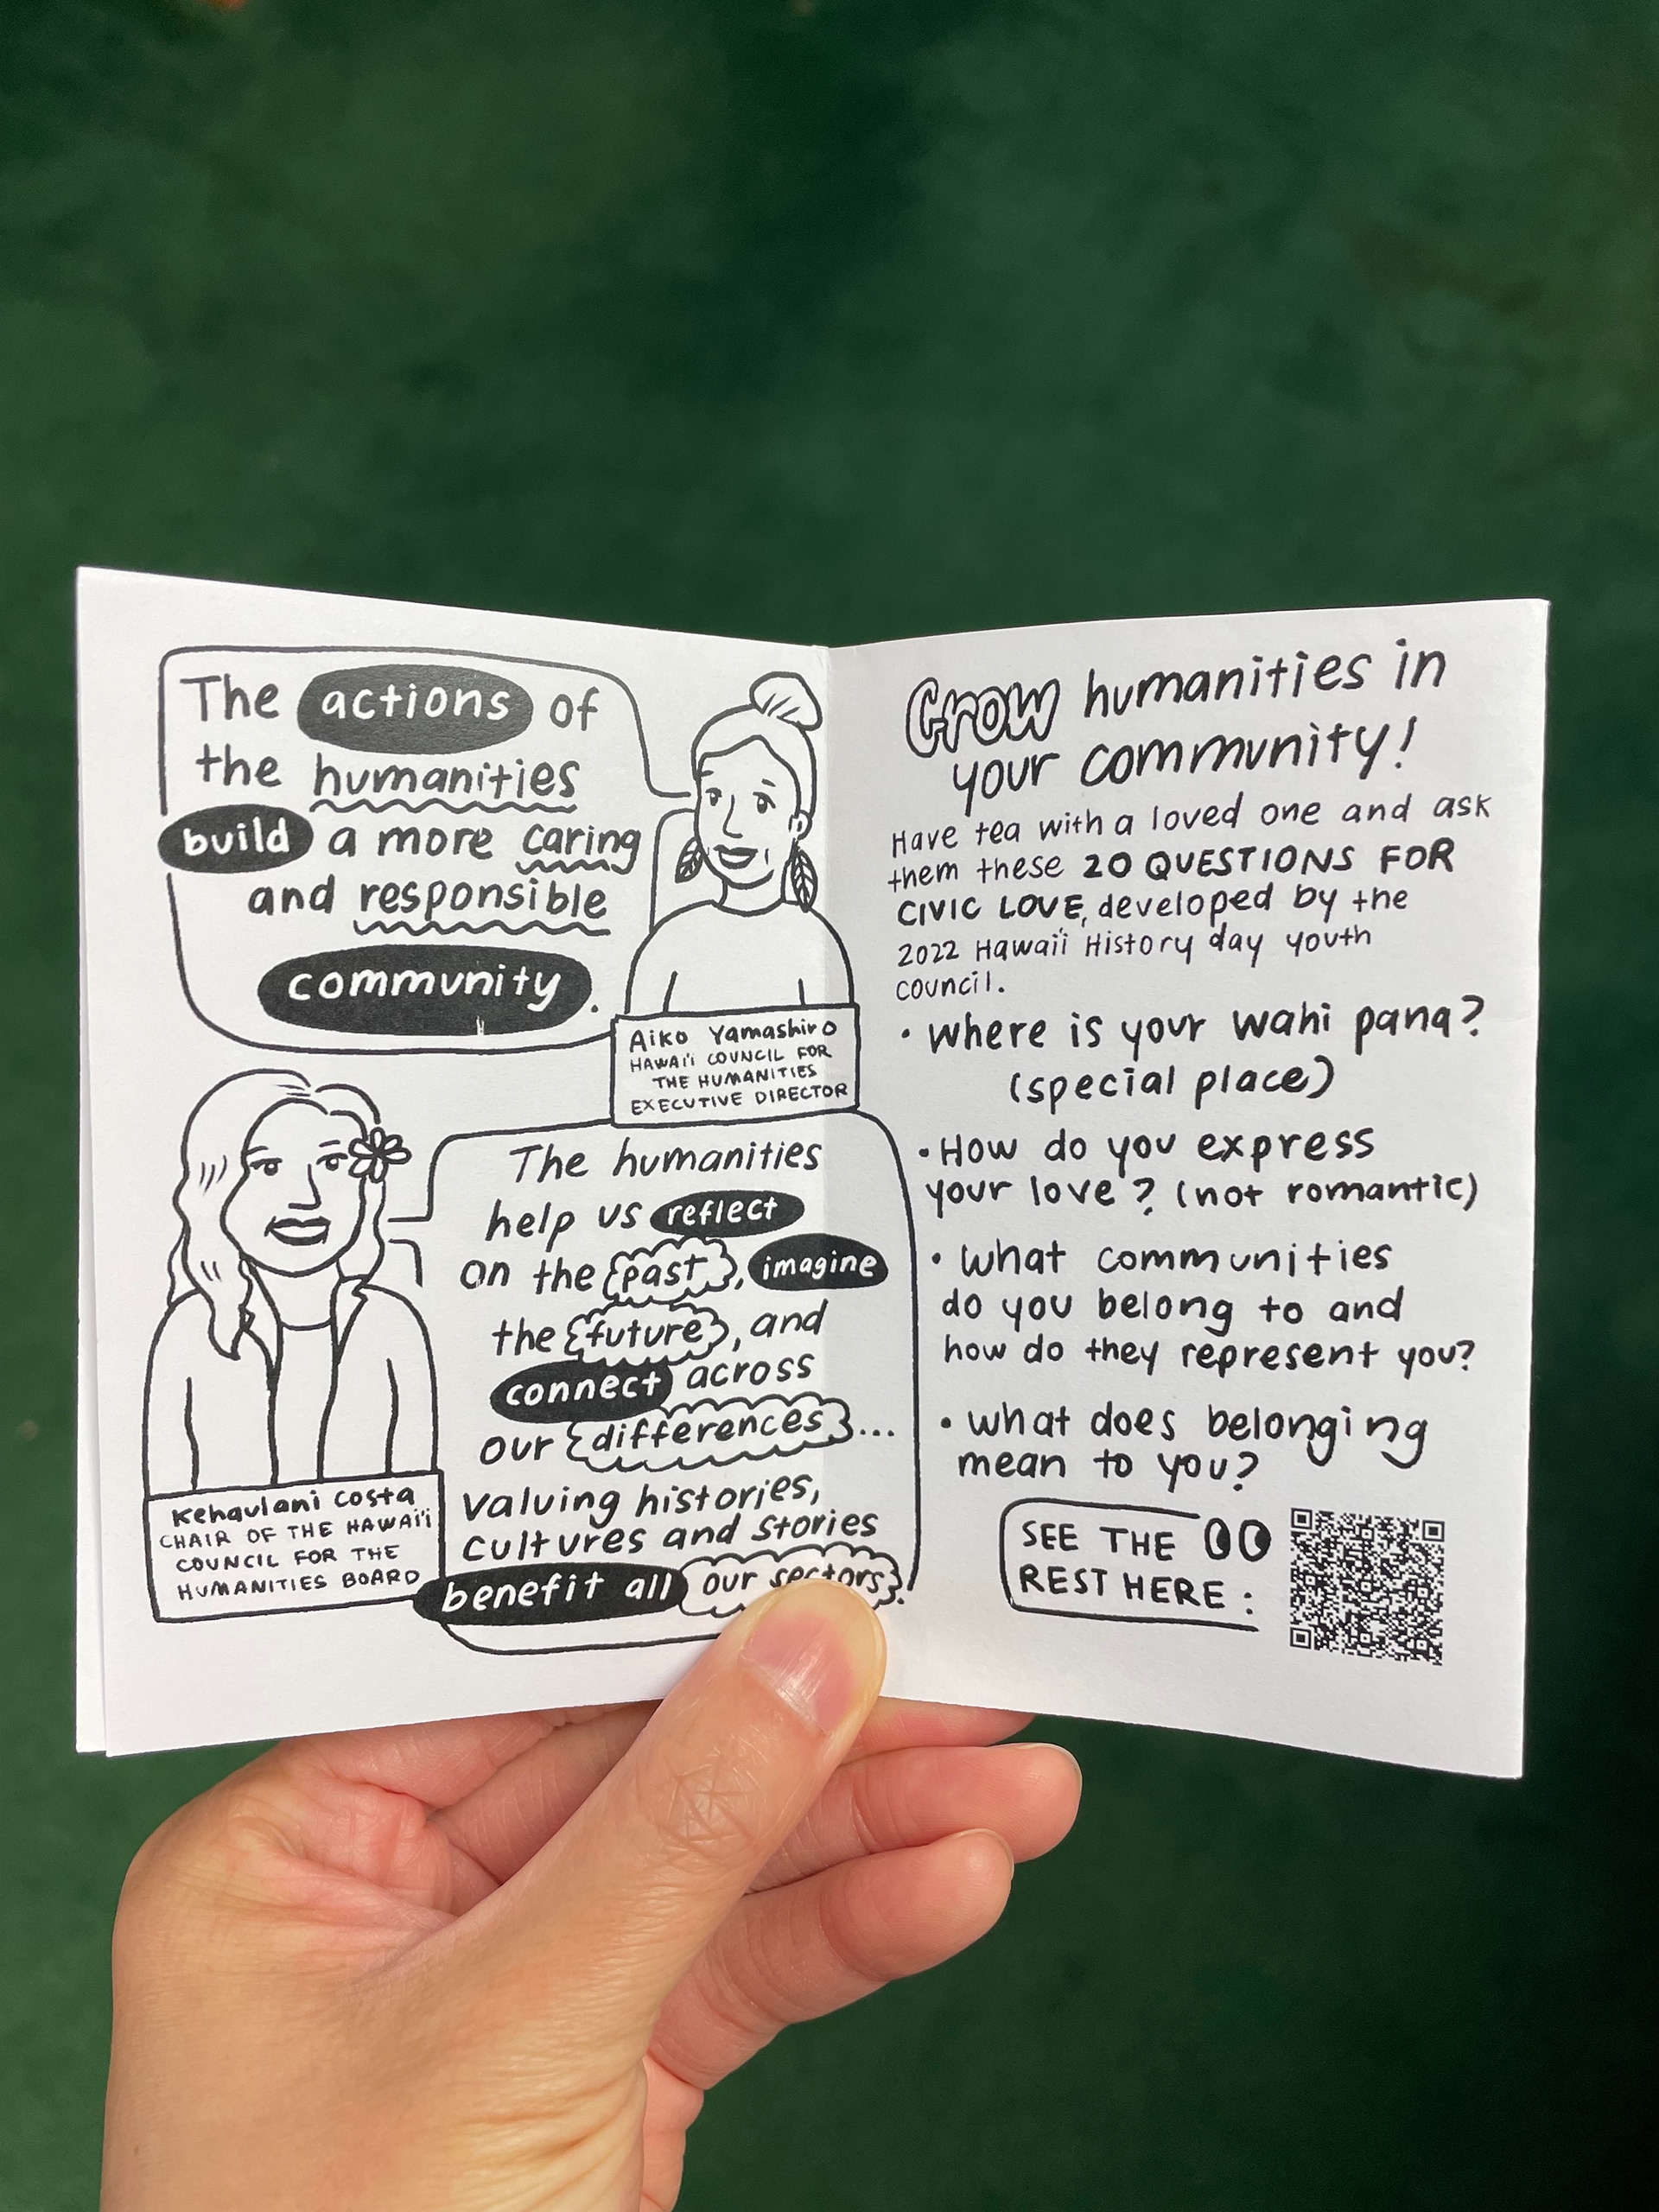 The actions of
the humanities
build a more caring
and responsible
community.
Aiko Yamashiro
HAWAI'I COUNCIL FOR
THE HUMANITIES
EXECUTIVE DIRECTOR
The humanities
help us reflect
on the past, imagine
the future, and
connect across
our differences...
valuing histories,
cultures and stories
benefit all our sectors.
Kehaulani Costa
CHAIR OF THE HAWAI'I
COUNCIL FOR THE
HUMANITIES BOARD
Grow humanities in
your community!
Have tea with a loved one and ask
them these 20 QUESTIONS FOR
CIVIC LOVE, developed by the
2022 Hawai'i History day youth
council.
• Where is your wahi pana?
(special place)
• How do you express
your love? (not romantic)
• What communities
do you belong to and
how do they represent you?
• What does belonging
mean to you?
SEE THE
REST HERE: